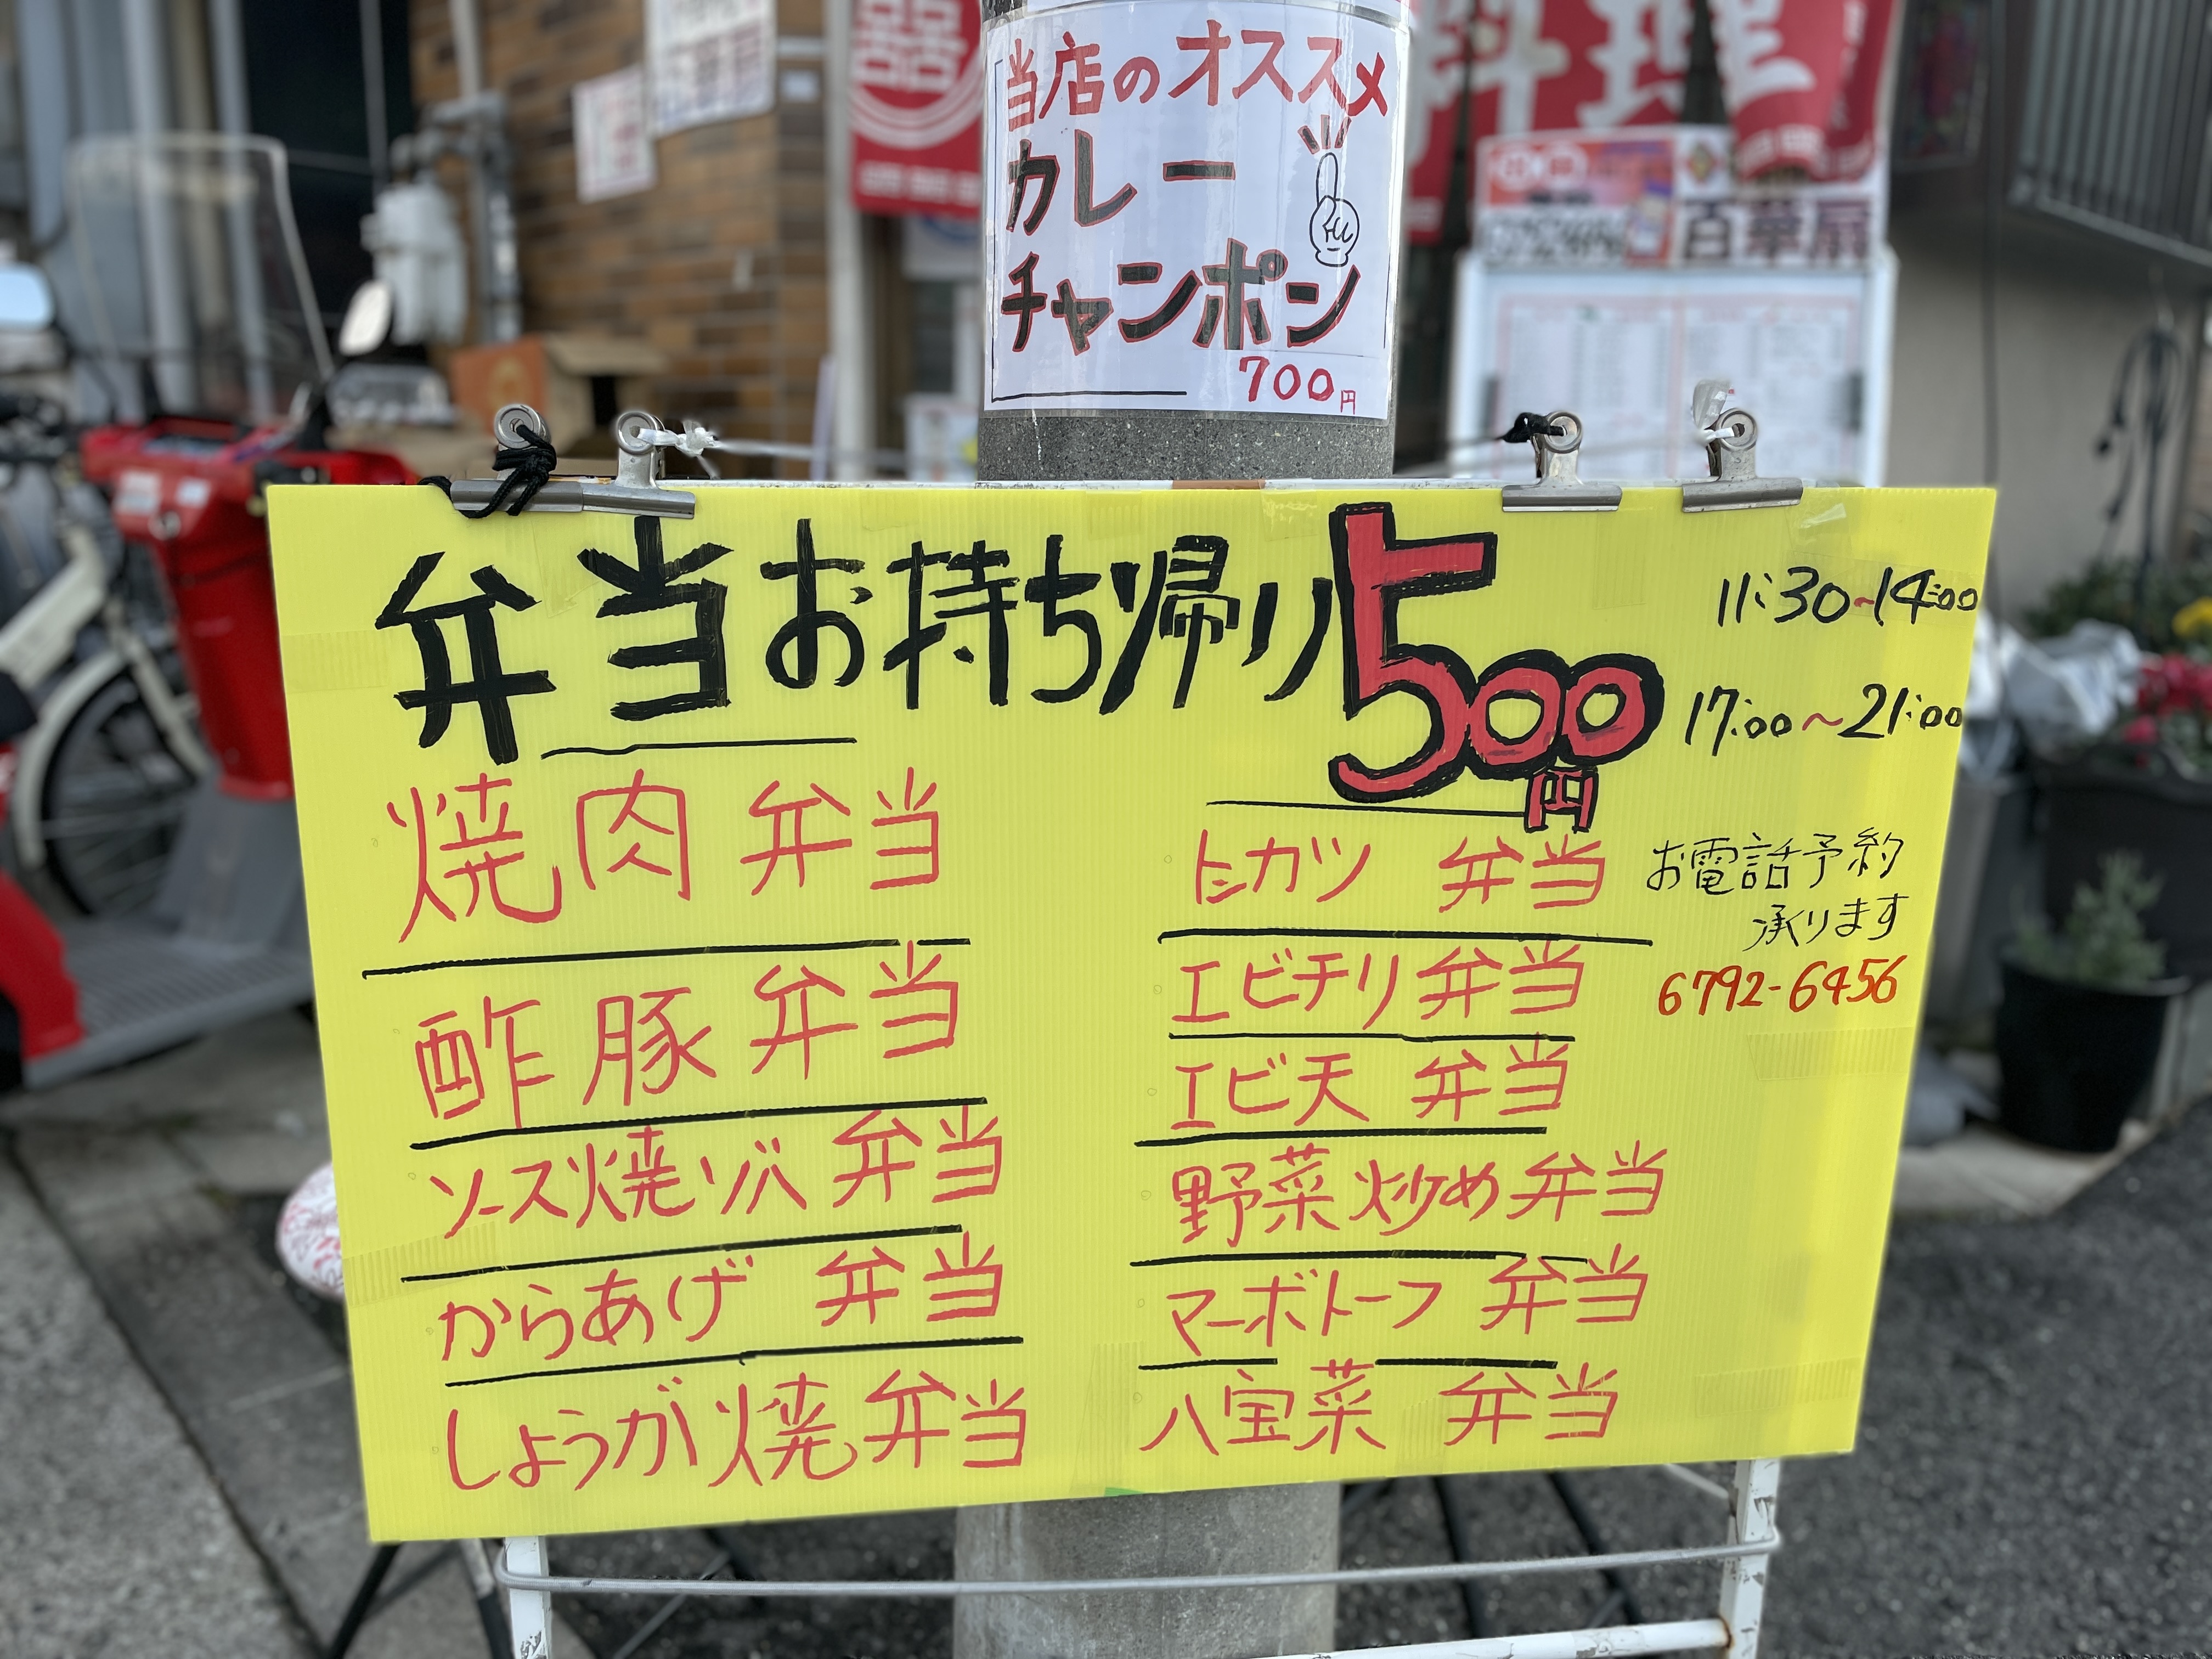 当店のオススメ
カレー
チャンポン
700円
料理
百華展
弁当お持ち帰り500円
11:30~14:00
17:00~21:00
焼肉弁当
酢豚弁当
ソース焼ソバ弁当
からあげ弁当
しょうが焼弁当
トンカツ弁当
エビチリ弁当
エビ天弁当
野菜炒め弁当
マーボトーフ弁当
八宝菜弁当
お電話予約
承ります
6792-6456